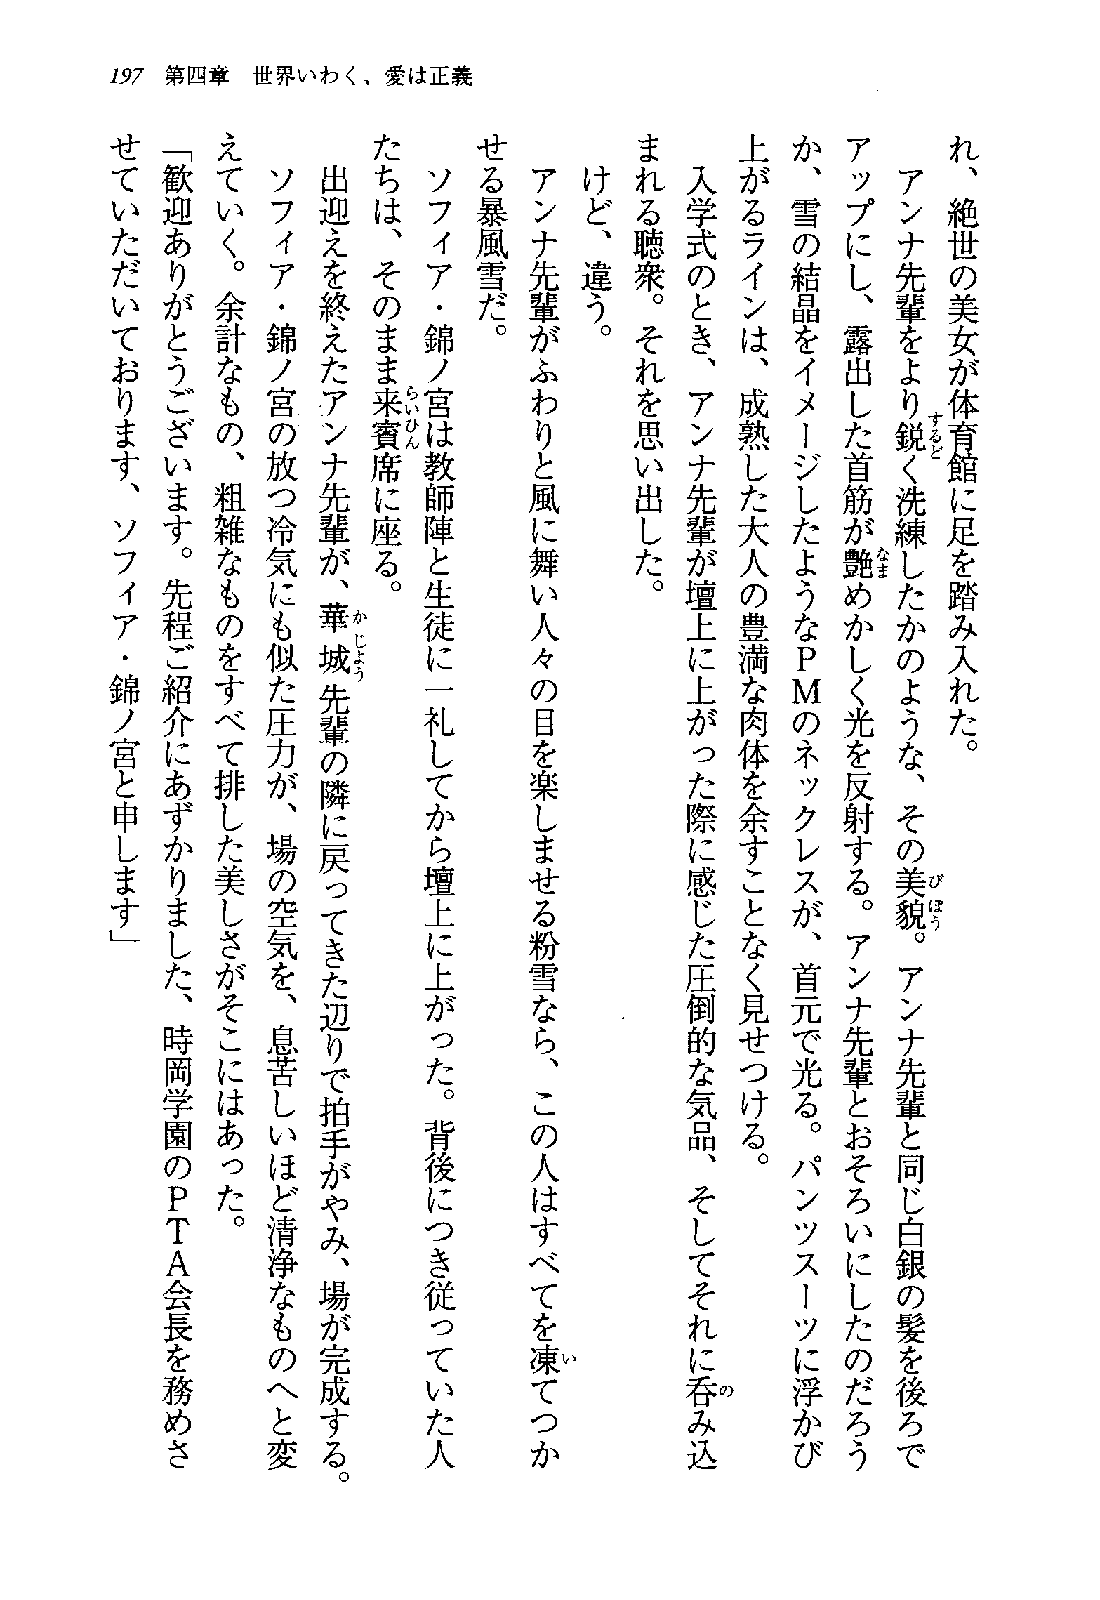 197 第四章 世界いわく、愛は正義
れ、絶世の美女が体育館に足を踏み入れた。
アンナ先輩をより鋭く洗練したかのような、その美貌。アンナ先輩と同じ白銀の髪を後ろで
アップにし、露出した首筋が艶めかしく光を反射する。アンナ先輩とおそろいにしたのだろう
か、雪の結晶をイメージしたようなPMのネックレスが、首元で光る。パンツスーツに浮かび
上がるラインは、成熟した大人の豊満な肉体を余すことなく見せつける。
入学式のとき、アンナ先輩が壇上に上がった際に感じた圧倒的な気品、そしてそれに呑み込
まれる聴衆。それを思い出した。
けど、違う。
アンナ先輩がふわりと風に舞い人々の目を楽しませる粉雪なら、この人はすべてを凍てつか
せる暴風雪だ。
ソフィア・錦ノ宮は教師陣と生徒に一礼してから壇上に上がった。背後につき従っていた人
たちは、そのまま来賓席に座る。
出迎えを終えたアンナ先輩が、華城先輩の隣に戻ってきた辺りで拍手がやみ、場が完成する。
ソフィア・錦ノ宮の放つ冷気にも似た圧力が、場の空気を、息苦しいほど清浄なものへと変
えていく。余計なもの、粗雑なものをすべて排した美しさがそこにはあった。
「歓迎ありがとうございます。先程ご紹介にあずかりました、時岡学園のPTA会長を務めさ
せていただいております、ソフィア・錦ノ宮と申します」